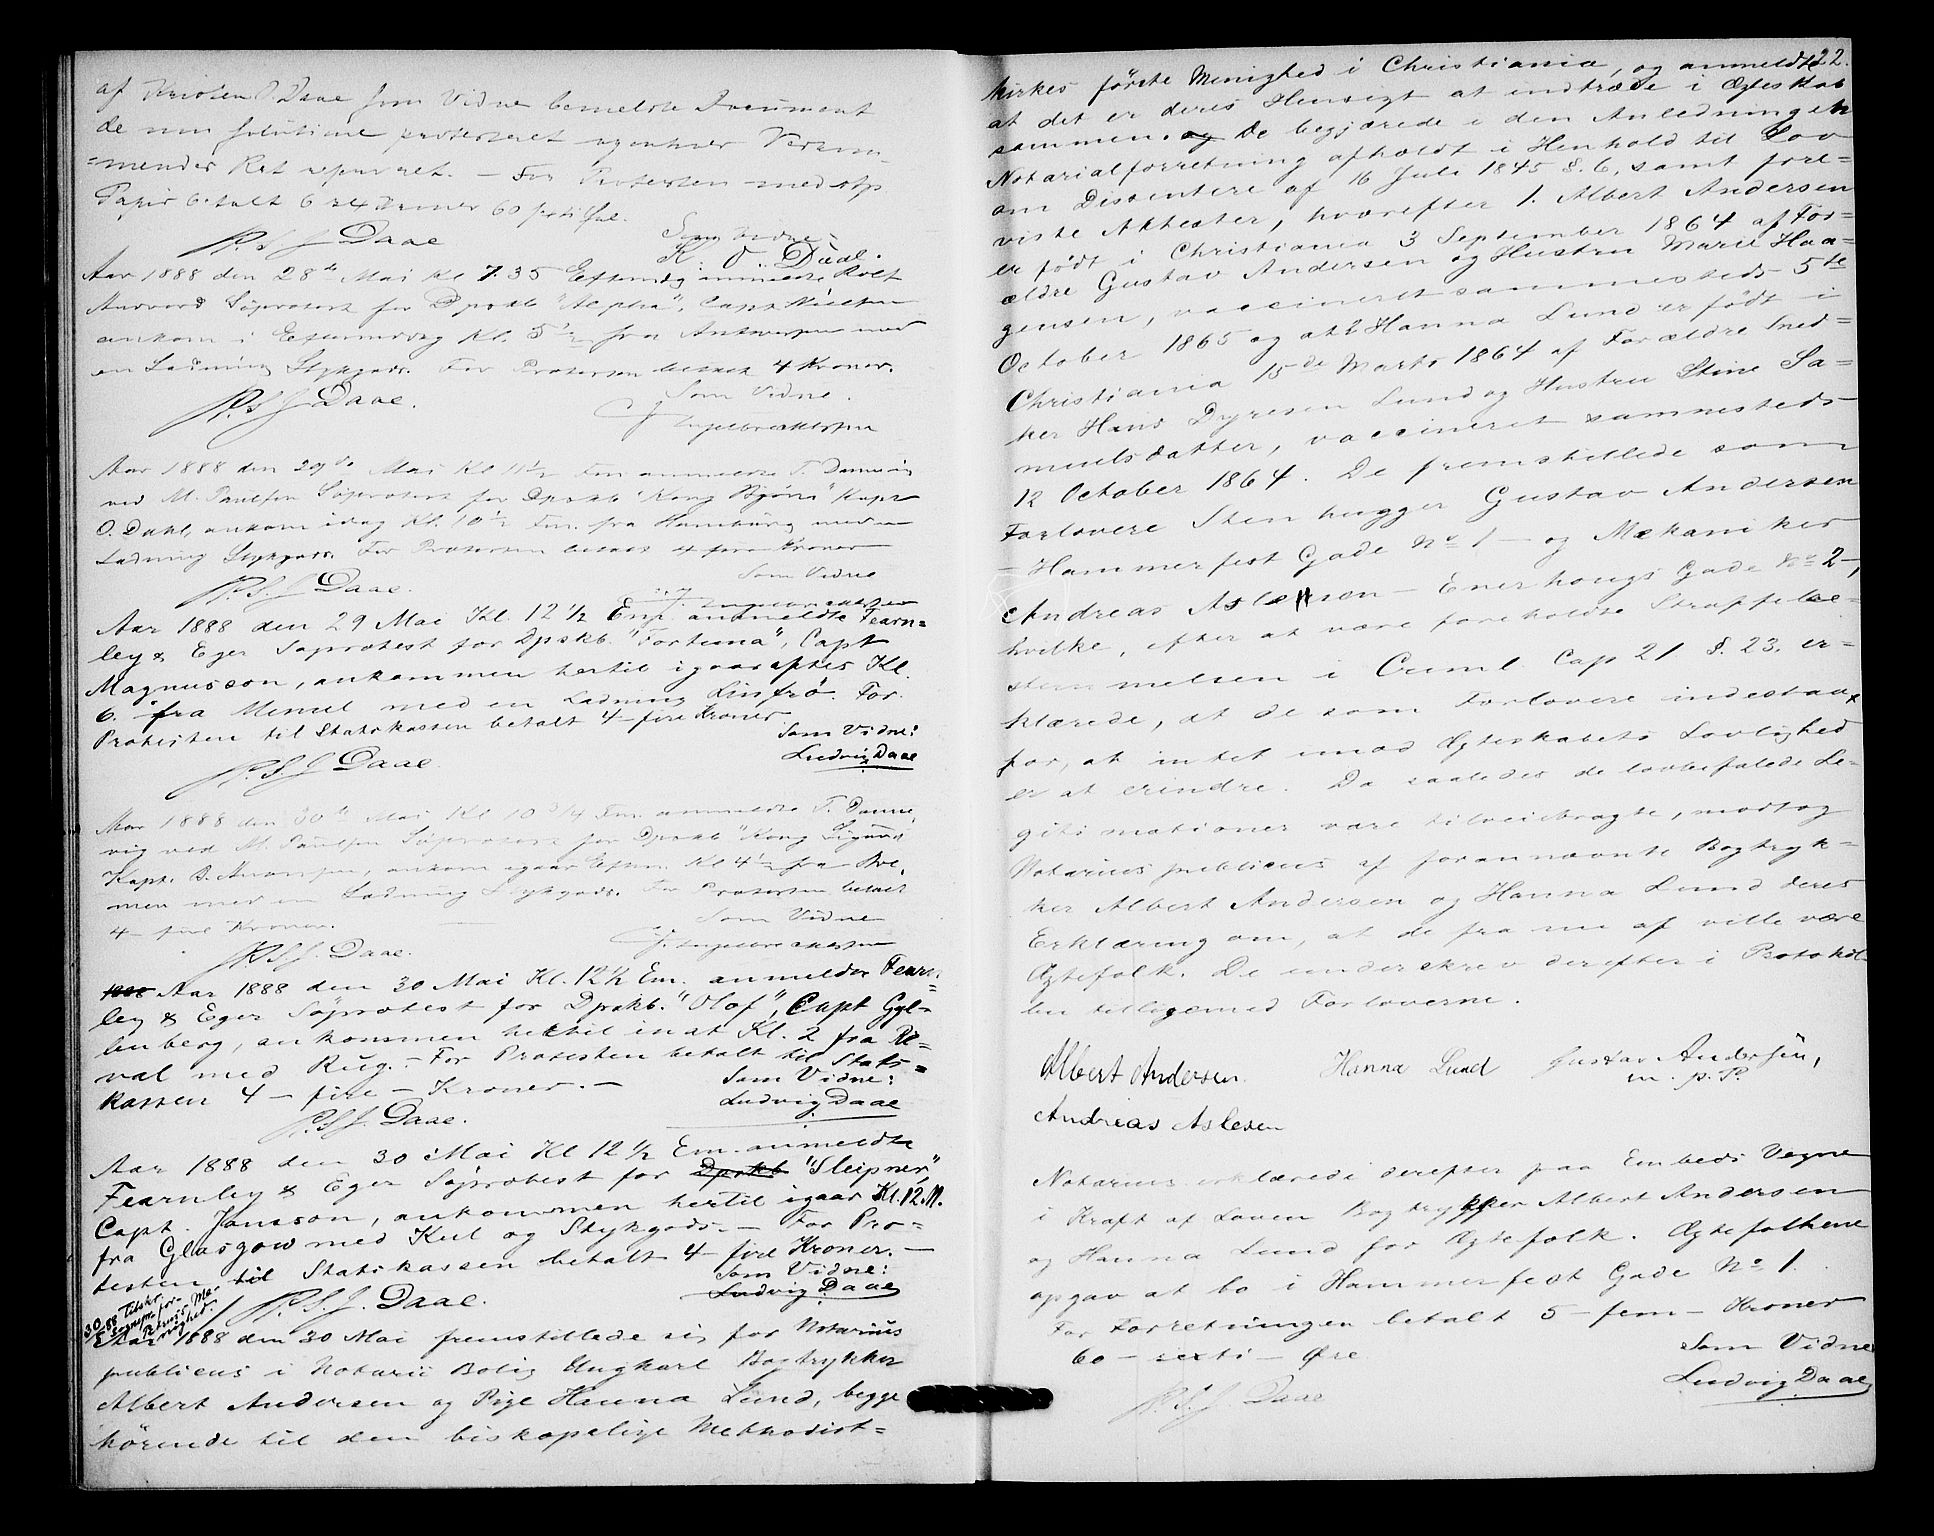 af Kristen O Daae som Vidne bemeldte Document
de non solutione protesteret og enhver Vedkom-
=mende Ret reserveret. – For Protesten med stp
Papir betalt 6 Kroner 60
P. S. J. Daae
Som Vidne:
K. O. Daae.
Aar 1888 den 28de Mai Kl 7.35 Eftermdg anmeldte Rolf
Aurvard Søprotest for Dpskb "Alpha", Capt Nielsen
ankom i Eftermiddag Kl. 5 1/2 fra Antwerpen med
en Ladning Stykgods. For Protesten betalt 4 Kroner.
P. S. J Daae.
Som Vidne.
J. Engelbrecktsen
Aar 1888 den 29de Mai Kl 11 1/2 Fm anmeldte T. Dannevig
ved M. Paulsen Søprotest for Dpskb "Kong Bjørn" Kapt
O. Dahl, ankom idag Kl. 10 1/2 Fm. fra Hamburg med en
Ladning Stykgods. For Protesten betalt 4 fire Kroner
P. S. J. Daae.
Som Vidne
J. Engelbrecktsen
Aar 1888 den 29 Mai Kl. 12 1/2 Em. anmeldte Fearn=
ley & Eger Søprotest for Dpskb. "Fortuna", Capt
Magnusson, ankommen hertil igaaraftes Kl.
6. fra Memel med en Ladning Linfrø. For
Protesten til Statskassen betalt 4 – fire Kroner
P. S. J Daae.
Som Vidne:
Ludvig Daae
Aar 1888 den 30te Mai Kl 10 3/4 Fm. anmeldte T. Danne,
vig ved M. Paulsen Søprotest for Dpskb "Kong Sigurd
Kapt. B. Amonsen, ankom igaar Efterm. Kl 4 1/2 fra Bre,
men med en Ladning Stykgods. For Protesten betalt
4 – fire Kroner.
P. S. J. Daae.
Som Vidne
J. Engelbrecktsen
1888 Aar 1888 den 30 Mai Kl. 12 1/2 Em. anmeldte Fearn=
ley & Eger Søprotest for Dpskb. "Olof", Capt Gyl=
lenberg, ankommen hertil inat Kl. 2 fra Re=
val med Rug. – For Protesten betalt til Stats=
kassen 4 – fire – Kroner. –
P. S. J. Daae.
Som Vidne:
Ludvig Daae
Aar 1888 den 30 Mai Kl 12 1/2 Em. anmeldte
Fearnley & Eger Søprotest for Dpskb "Sleipner",
Capt. Jonsson, ankommen hertil igaar Kl. 12. M.
fra Glasgow med Kul og Stykgods. – For Pro=
testen til Statskassen betalt 4 – fire Kroner. –
P. S. J. Daae.
Som Vidne:
Ludvig Daae
30/5 88 Tilskr.
Sognepr. for
Petrus Me-
nighed.
Aar 1888 den 30 Mai fremstillede sig for Notarius
publicus i Notarii Bolig Ungkarl Bogtrykker
Albert Andersen og Pige Hanna Lund, begge
hørende til den biskopelige Methodist=
22.
kirkes første Menighed i Christiania, og anmeldte
at det er deres Hensigt at indtræde i Ægteskab
sammen. og De begjærede i den Anledning en
Notarialforretning afholdt i Henhold til Lov
om Dissentere af 16 Juli 1845 §. 6, samt fore=
viste Attester, hvorefter 1. Albert Andersen
er født i Christiania 3 September 1864 af For=
ældre Gustav Andersen og Hustru Marie Haa=
gensen, vaccineret sammesteds 5te
October 1865 og at 2 Hanna Lund er født i
Christiania 15de Marts 1864 af Forældre Sned=
ker Hans Dyresen Lund og Hustru Stine Sa=
muelsdatter, vaccineret sammesteds
12 October 1864. De fremstillede som
Forlovere Stenhugger Gustav Andersen
– Hammerfest Gade No 1 – og Mekaniker
Andreas Aslesen – Enerhougs Gade No 2 –,
hvilke, efter at være foreholdte Straffebe=
stemmelsen i Criml Cap 21 §. 23, er=
klærede, at de som Forlovere indestaar
for, at intet imod Ægteskabets Lovlighed
er at erindre. Da saaledes de lovbefalede Le=
gitimationer vare tilveiebragte, modtog
Notarius publicus af forannævnte Bogtryk=
ker Albert Andersen og Hanna Lund deres
Erklæring om, at de fra nu af ville være
Ægtefolk. De underskrev derefter i Protokol-
len tilligemed Forloverne.
Albert Andersen. Hanna Lund Gustav Andersen,
m. p. P.
Andreas Aslesen
Notarius erklærede derefter paa Embeds Vegne
i Kraft af Loven Bogtrykker Albert Andersen
og Hanna Lund for Ægtefolk. Ægtefolkene
opgav at bo i Hammerfest Gade No 1.
For Forretningen betalt 5 – fem – Kroner
60 – sexti – Øre
Som Vidne
Ludvig Daae
P. S. J. Daae